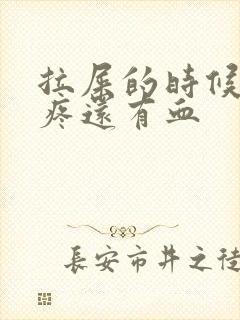 拉屎的時候
疼還有血
長安市井之徒